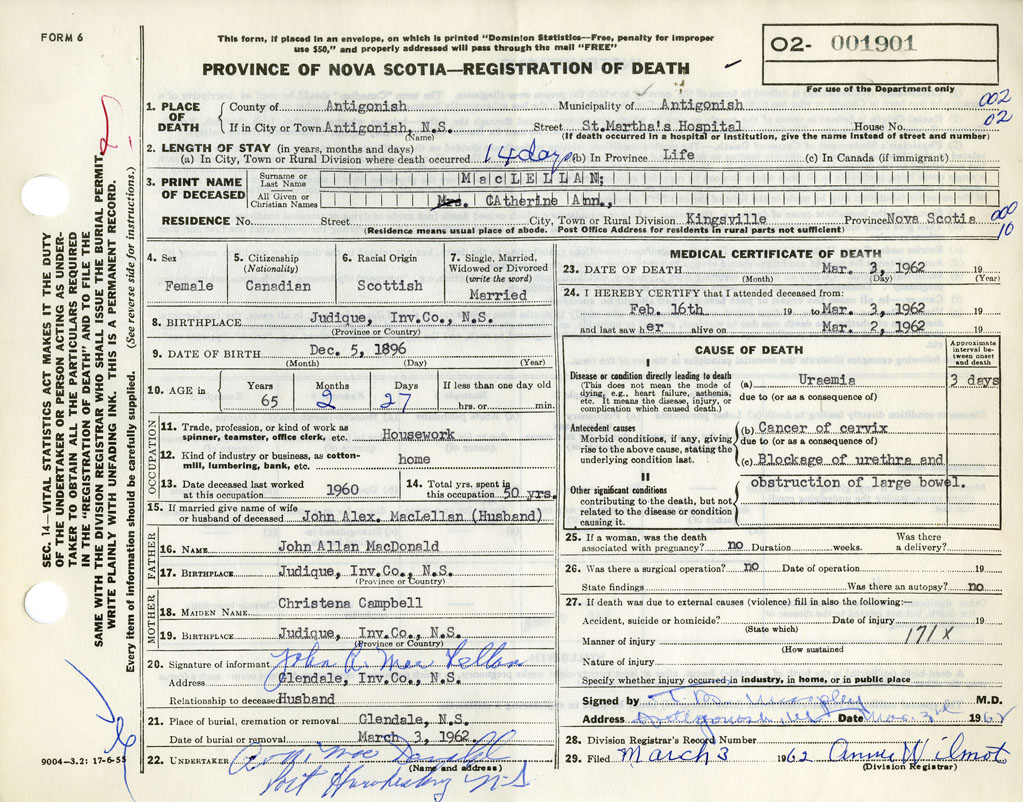 FORM 6
This form, if placed in an envelope, on which is printed "Dominion Statistics—Free, penalty for improper
use $50," and properly addressed will pass through the mail "FREE"
PROVINCE OF NOVA SCOTIA—REGISTRATION OF DEATH
02- 001901
For use of the Department only
1. PLACE OF DEATH County of Antigonish Municipality of Antigonish 002
If in City or Town Antigonish, N.S. Street St.Martha's Hospital House No. 02
(Name) (If death occurred in a hospital or institution, give the name instead of street and number)
2. LENGTH OF STAY (in years, months and days)
(a) In City, Town or Rural Division where death occurred 14 days (b) In Province Life (c) In Canada (if immigrant)
3. PRINT NAME OF DECEASED Surname or Last Name MacLELLAN;
All Given or Christian Names Mrs. CAtherine Ann.,
RESIDENCE No. Street City, Town or Rural Division Kingsville Province Nova Scotia 000
(Residence means usual place of abode. Post Office Address for residents in rural parts not sufficient) 10
4. Sex Female
5. Citizenship (Nationality) Canadian
6. Racial Origin Scottish
7. Single, Married, Widowed or Divorced (write the word) Married
8. BIRTHPLACE Judique, Inv.Co., N.S.
(Province or Country)
9. DATE OF BIRTH Dec. 5, 1896
(Month) (Day) (Year)
10. AGE in Years Months Days If less than one day old
65 2 27 hrs. or min.
OCCUPATION
11. Trade, profession, or kind of work as
spinner, teamster, office clerk, etc. Housework
12. Kind of industry or business, as cotton-
mill, lumbering, bank, etc. home
13. Date deceased last worked at this occupation 1960
14. Total yrs. spent in this occupation 50 yrs.
15. If married give name of wife
or husband of deceased John Alex. MacLellan (Husband)
FATHER
16. NAME John Allan MacDonald
17. BIRTHPLACE Judique, Inv.Co., N.S.
(Province or Country)
MOTHER
18. MAIDEN NAME Christena Campbell
19. BIRTHPLACE Judique, Inv.Co., N.S.
(Province or Country)
20. Signature of informant John A. MacLellan
Address Glendale, Inv.Co., N.S.
Relationship to deceased Husband
21. Place of burial, cremation or removal Glendale, N.S.
Date of burial or removal March 3, 1962
22. UNDERTAKER Mac Donald
(Name and address)
Port Hawkesbury N.S.
MEDICAL CERTIFICATE OF DEATH
23. DATE OF DEATH Mar. 3, 1962 19
(Month) (Day) (Year)
24. I HEREBY CERTIFY that I attended deceased from:
Feb. 16th 19 to Mar. 3, 1962
and last saw her alive on Mar. 2, 1962 19
CAUSE OF DEATH
Approximate interval between onset and death
I
Disease or condition directly leading to death
(This does not mean the mode of
dying, e.g., heart failure, asthenia,
etc. It means the disease, injury, or
complication which caused death.)
(a) Uraemia 3 days
due to (or as a consequence of)
Antecedent causes
Morbid conditions, if any, giving
rise to the above cause, stating the
underlying condition last.
(b) Cancer of cervix
due to (or as a consequence of)
(c) Blockage of urethra and
obstruction of large bowel.
II
Other significant conditions
contributing to the death, but not
related to the disease or condition
causing it.
25. If a woman, was the death
associated with pregnancy? no Duration weeks. Was there a delivery?
26. Was there a surgical operation? no Date of operation 19
State findings Was there an autopsy? no
27. If death was due to external causes (violence) fill in also the following:—
Accident, suicide or homicide? Date of injury 19
(State which)
Manner of injury 171X
(How sustained)
Nature of injury
Specify whether injury occurred in industry, in home, or in public place
Signed by M.D.
Address Antigonish, Date Mar. 3rd 1962
28. Division Registrar's Record Number
29. Filed March 3 1962 Annie Wilmot
(Division Registrar)
SEC. 14—VITAL STATISTICS ACT MAKES IT THE DUTY
OF THE UNDERTAKER OR PERSON ACTING AS UNDER-
TAKER TO OBTAIN ALL THE PARTICULARS REQUIRED
IN THE "REGISTRATION OF DEATH" AND TO FILE THE
SAME WITH THE DIVISION REGISTRAR WHO SHALL ISSUE THE BURIAL PERMIT.
WRITE PLAINLY WITH UNFADING INK. THIS IS A PERMANENT RECORD.
Every item of information should be carefully supplied. (See reverse side for instructions.)
9004-3.2: 17-6-55